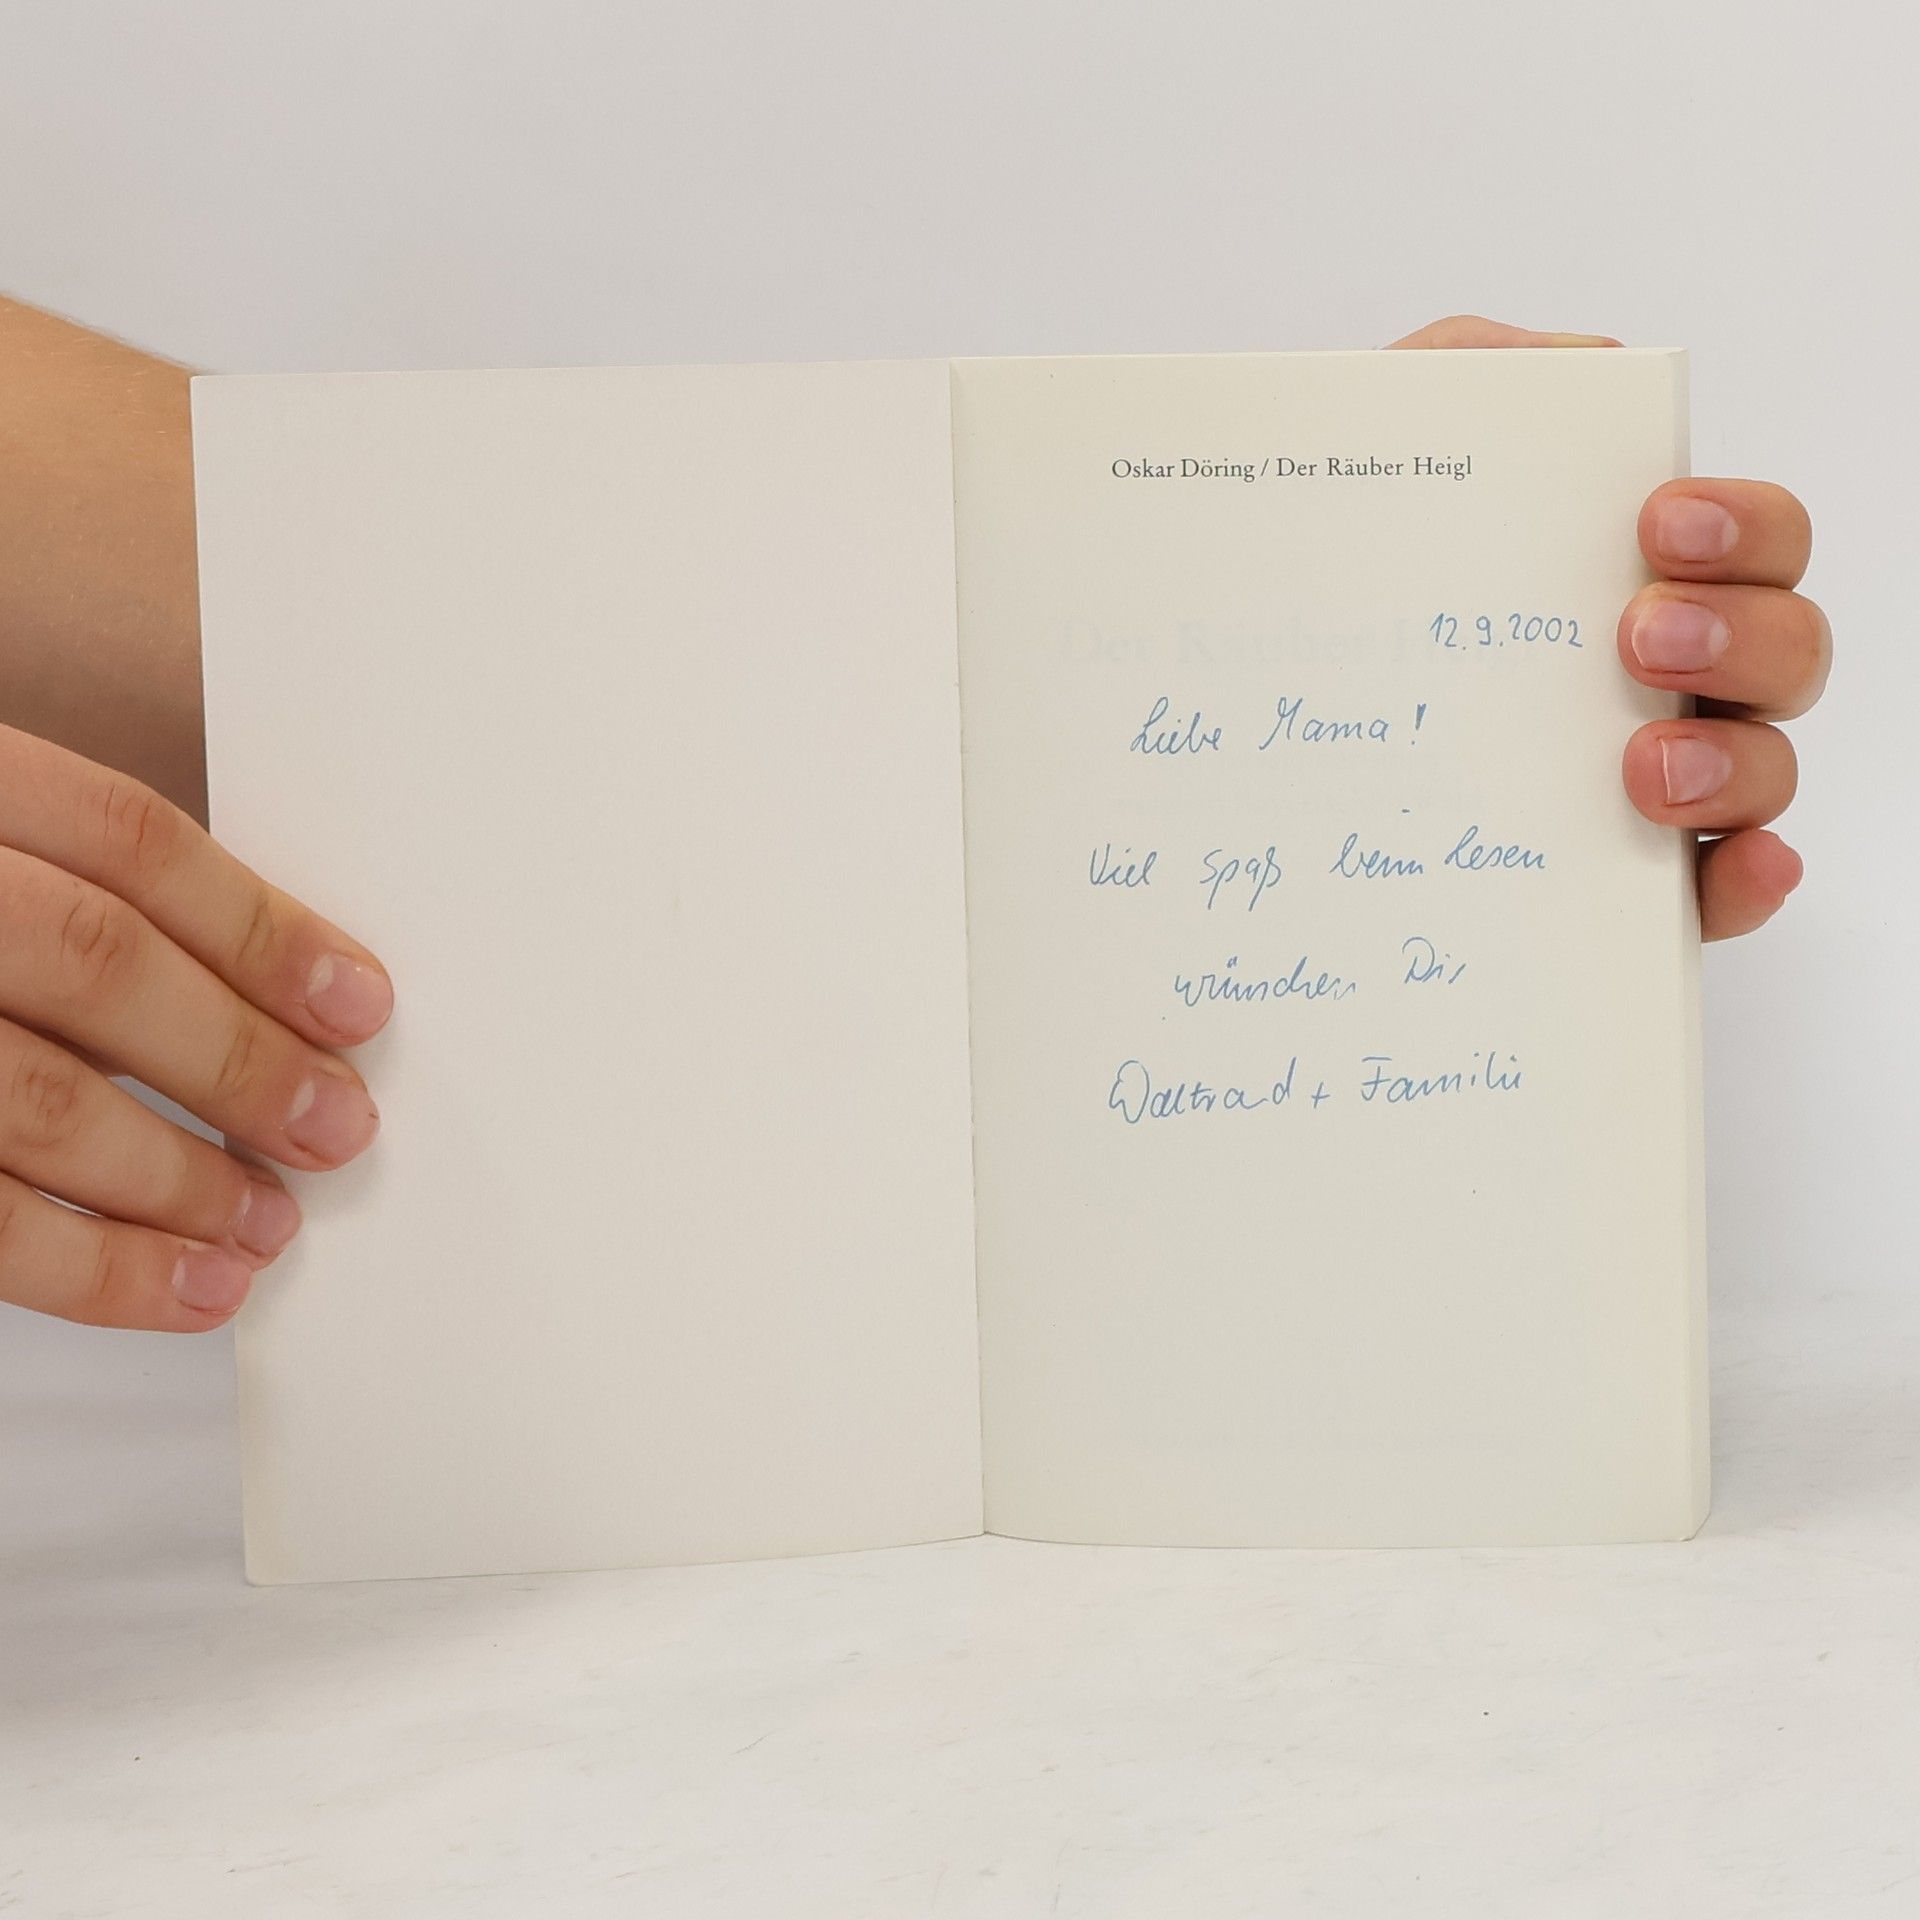 Oskar Döring / Der Räuber Heigl
12.9.2002
Liebe Mama!
Viel Spaß beim Lesen
wünschen Dir
Waltraud + Familie